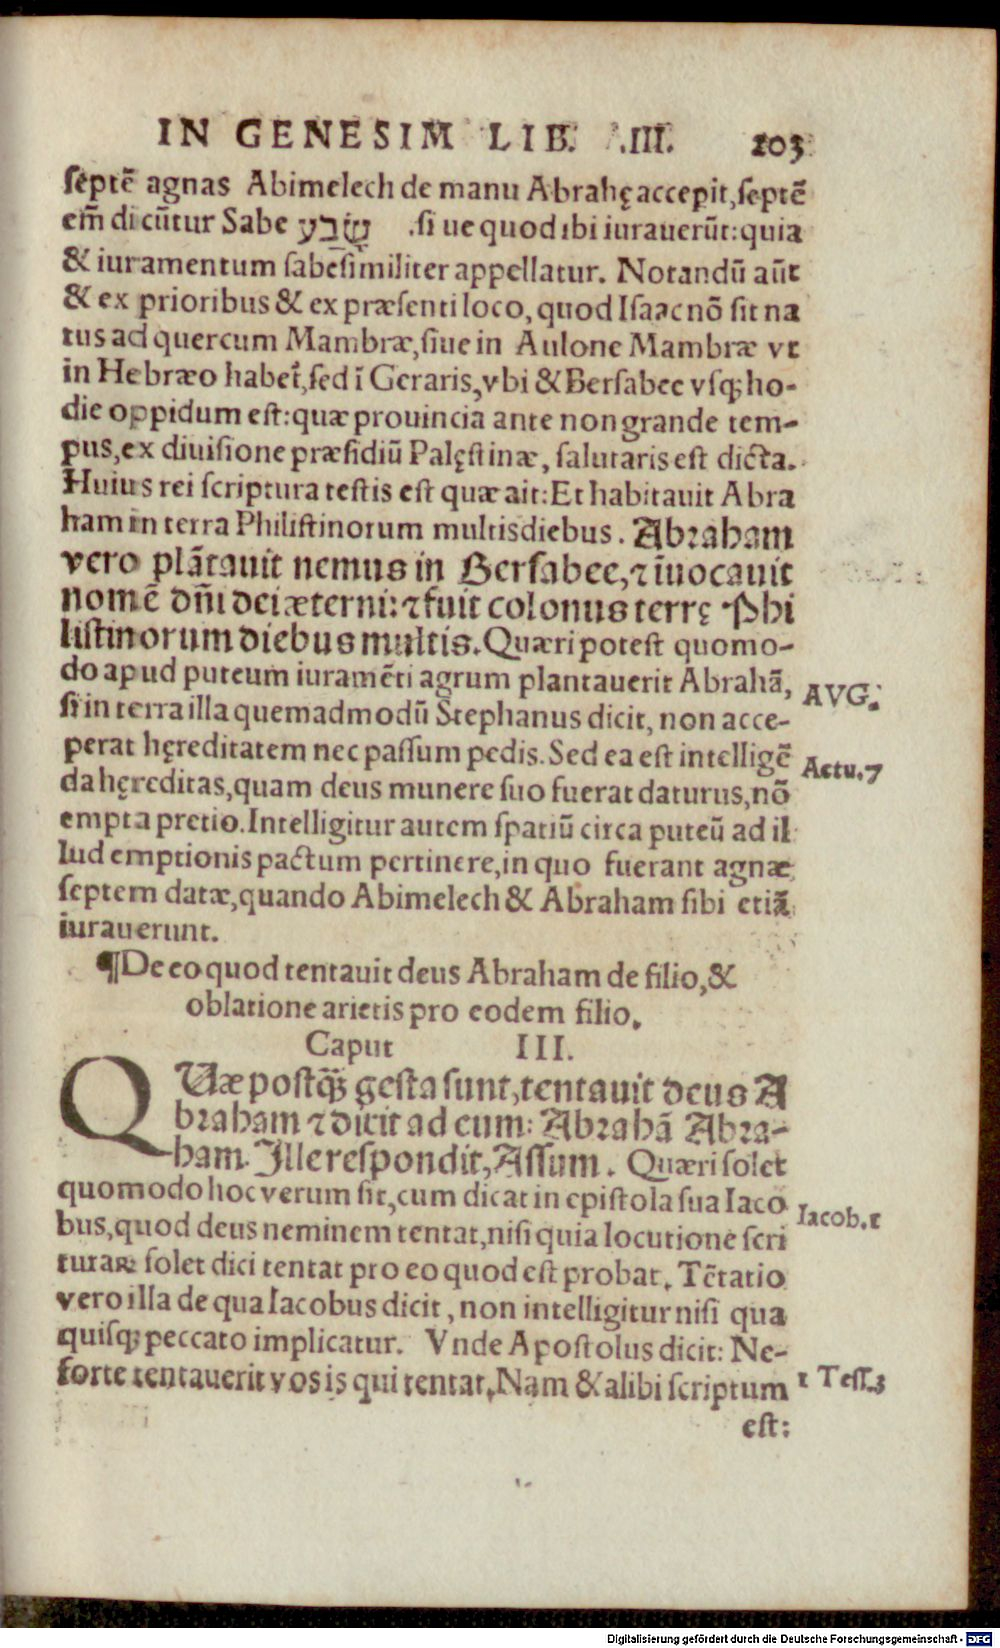 IN GENESIM LIB. .III. 203
septē agnas Abimelech de manu Abrahę accepit, septē
em̄ dicūtur Sabe שבע .siue quod ibi iurauerūt: quia
& iuramentum sabe similiter appellatur. Notandū aūt
& ex prioribus & ex præsenti loco, quod Isaac nō sit na
tus ad quercum Mambræ, siue in Aulone Mambræ vt
in Hebræo habet̄, sed ī Geraris, vbi & Bersabee vsq; ho-
die oppidum est: quæ prouincia ante non grande tem-
pus, ex diuisione præsidiū Palęstinæ, salutaris est dicta.
Huius rei scriptura testis est quæ ait: Et habitauit Abra
ham in terra Philistinorum multis diebus. Abraham
vero plātauit nemus in Bersabee, ⁊ īuocauit
nomē dn̄i dei æterni: ⁊ fuit colonus terrę Phi
listinorum diebus multis. Quæri potest quomo-
do apud puteum iuramēti agrum plantauerit Abrahā,
AVG.
si in terra illa quemadmodū Stephanus dicit, non acce-
perat hęreditatem nec passum pedis. Sed ea est intelligē
Actu. 7
da hęreditas, quam deus munere suo fuerat daturus, nō
empta pretio. Intelligitur autem spatiū circa puteū ad il
lud emptionis pactum pertinere, in quo fuerant agnæ
septem datæ, quando Abimelech & Abraham sibi etiā
iurauerunt.
¶De eo quod tentauit deus Abraham de filio, &
oblatione arietis pro eodem filio.
Caput III.
QVæ postq̄ȝ gesta sunt, tentauit deus A
braham ⁊ dicit ad eum: Abrahā Abra-
ham. Ille respondit, Assum. Quæri solet
quomodo hoc verum sit, cum dicat in epistola sua Iaco
Iacob. 1
bus, quod deus neminem tentat, nisi quia locutione scri
turaꝝ solet dici tentat pro eo quod est probat. Tētatio
vero illa de qua Iacobus dicit, non intelligitur nisi qua
quisq; peccato implicatur. Vnde Apostolus dicit: Ne-
forte tentauerit vos is qui tentat. Nam & alibi scriptum
1 Tess. 3
est: